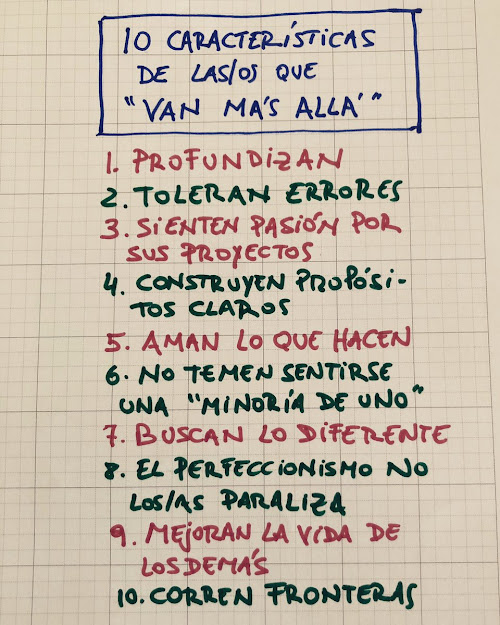 10 CARACTERÍSTICAS
DE LAS/OS QUE
"VAN MÁS ALLÁ"
1. PROFUNDIZAN
2. TOLERAN ERRORES
3. SIENTEN PASIÓN POR
SUS PROYECTOS
4. CONSTRUYEN PROPÓSI-
TOS CLAROS
5. AMAN LO QUE HACEN
6. NO TEMEN SENTIRSE
UNA "MINORÍA DE UNO"
7. BUSCAN LO DIFERENTE
8. EL PERFECCIONISMO NO
LOS/AS PARALIZA
9. MEJORAN LA VIDA DE
LOS DEMÁS
10. CORREN FRONTERAS